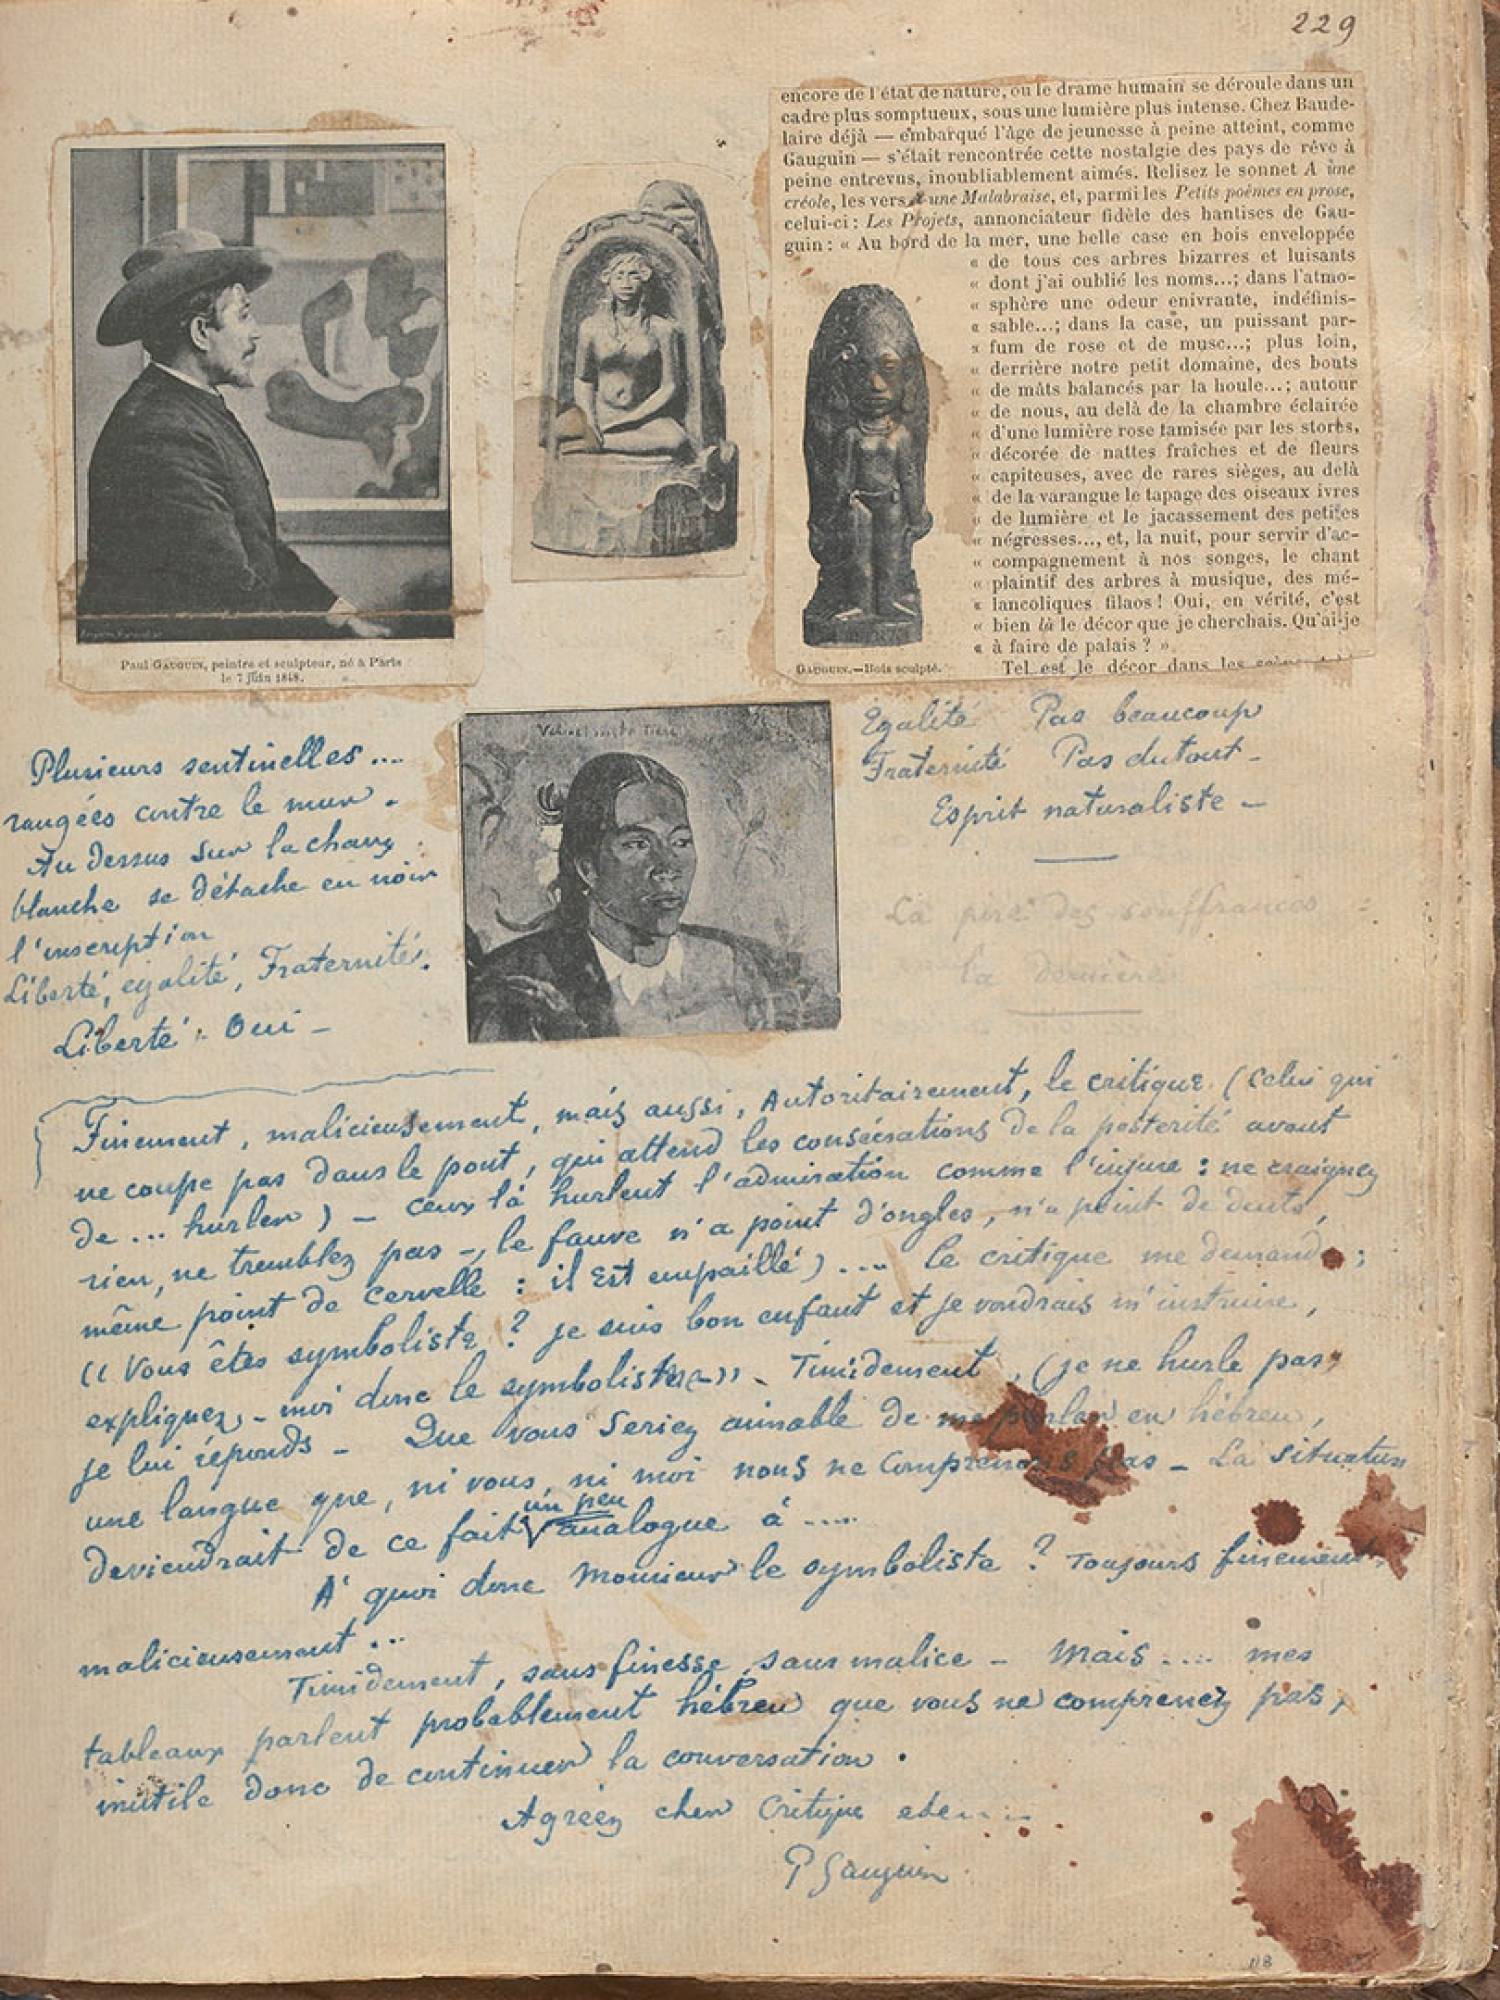 229
encore de l'état de nature, ou le drame humain se déroule dans un
cadre plus somptueux, sous une lumière plus intense. Chez Baude-
laire déjà — embarqué l'âge de jeunesse à peine atteint, comme
Gauguin — s'était rencontrée cette nostalgie des pays de rêve à
peine entrevus, inoubliablement aimés. Relisez le sonnet A une
créole, les vers à une Malabraise, et, parmi les Petits poèmes en prose,
celui-ci : Les Projets, annonciateur fidèle des hantises de Gau-
guin : « Au bord de la mer, une belle case en bois enveloppée
« de tous ces arbres bizarres et luisants
« dont j'ai oublié les noms...; dans l'atmo-
« sphère une odeur enivrante, indéfinis-
« sable...; dans la case, un puissant par-
« fum de rose et de musc...; plus loin,
« derrière notre petit domaine, des bouts
« de mâts balancés par la houle...; autour
« de nous, au delà de la chambre éclairée
« d'une lumière rose tamisée par les stores,
« décorée de nattes fraîches et de fleurs
« capiteuses, avec de rares sièges, au delà
« de la varangue le tapage des oiseaux ivres
« de lumière et le jacassement des petites
« négresses..., et, la nuit, pour servir d'ac-
« compagnement à nos songes, le chant
« plaintif des arbres à musique, des mé-
« lancoliques filaos ! Oui, en vérité, c'est
« bien là le décor que je cherchais. Qu'ai-je
« à faire de palais ? »
Tel est le décor dans les
GAUGUIN.—Bois sculpté.
Paul GAUGUIN, peintre et sculpteur, né à Paris
le 7 juin 1848.
Plusieurs sentinelles....
rangées contre le mur.
Au dessus sur la chaux
blanche se détache en noir
l'inscription
Liberté, egalité, Fraternité.
Liberté : Oui –
Egalité Pas beaucoup
Fraternité Pas du tout –
Esprit naturaliste –
La pire des souffrances :
la dernière
Finement, malicieusement, mais aussi, Autoritairement, le critique (Celui qui
ne coupe pas dans le pont, qui attend les consécrations de la postérité avant
de ... hurler) – Ceux là hurlent l'admiration comme l'injure : ne craignez
rien, ne tremblez pas –, le fauve n'a point d'ongles, n'a point de dents,
même point de cervelle : il Est empaillé) .... Le critique me demande ;
(( Vous êtes symboliste ? je suis bon enfant et je voudrais m'instruire,
expliquez-moi donc le symbolisme –)) – Timidement, (je ne hurle pas)
je lui réponds – Que vous Seriez aimable de me parler en hébreu,
une langue que, ni vous, ni moi nous ne Comprenons pas – La situation
deviendrait de ce fait un peu analogue à .....
A quoi donc Monsieur le symboliste ? Toujours finement,
malicieusement ...
Timidement, sans finesse, sans malice – Mais .... mes
tableaux parlent probablement hébreu que vous ne comprenez pas,
inutile donc de continuer la conversation.
Agréez cher Critique etc....
P Gauguin
118